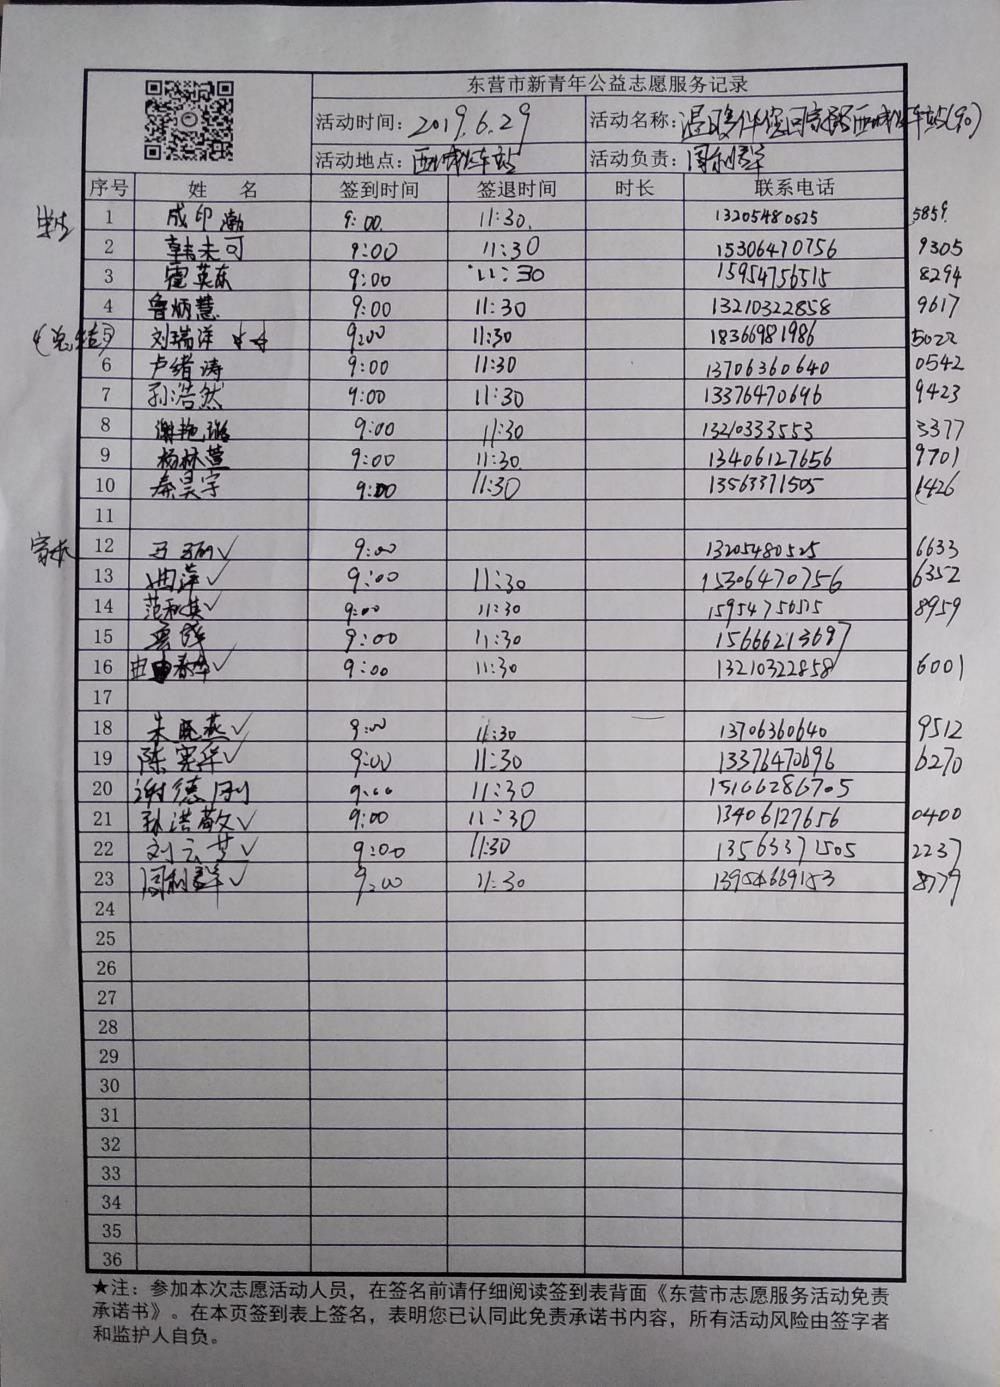 东营市新青年公益志愿服务记录
活动时间: 2019.6.29 活动名称: 温暖伴您回家 西城汽车站(90)
活动地点: 西城汽车站 活动负责: 周利群
序号 姓 名 签到时间 签退时间 时长 联系电话
学生 1 成印瀚 9:00 11:30 13205480525 5859
2 韩未可 9:00 11:30 15306470756 9305
3 霍英东 9:00 11:30 15954756515 8294
4 鲁炳慧 9:00 11:30 13210322858 9617
(总结) 5 刘瑞洋 ☆☆ 9:00 11:30 18366981986 5022
6 卢绪涛 9:00 11:30 13706360640 0542
7 孙浩然 9:00 11:30 13376470696 9423
8 谢艳璐 9:00 11:30 13210333553 3377
9 杨林萱 9:00 11:30 13406127656 9701
10 秦昊宇 9:00 11:30 13563371505 1426
11
家长 12 ✓ 9:00 13205480525 6633
13 曲萍 ✓ 9:00 11:30 15306470756 6352
14 范和英 ✓ 9:00 11:30 15954756515 8959
15 9:00 11:30 15666213697
16 曲春华 ✓ 9:00 11:30 13210322858 6001
17
18 朱晓燕 ✓ 9:00 11:30 13706360640 9512
19 陈宪华 ✓ 9:00 11:30 13376470696 6270
20 谢德刚 9:00 11:30 15166286705
21 孙洪敬 ✓ 9:00 11:30 13406127656 0400
22 刘云芳 ✓ 9:00 11:30 13563371505 2237
23 周利群 ✓ 9:00 11:30 13954669153 8779
24
25
26
27
28
29
30
31
32
33
34
35
36
★注: 参加本次志愿活动人员, 在签名前请仔细阅读签到表背面《东营市志愿服务活动免责
承诺书》。在本页签到表上签名, 表明您已认同此免责承诺书内容, 所有活动风险由签字者
和监护人自负。